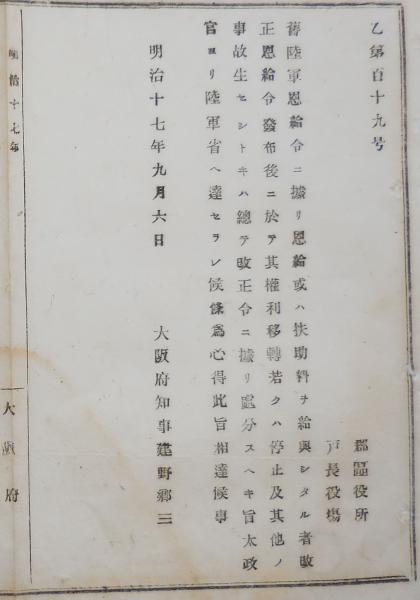 乙第百十九号
郡區役所
戸長役場
舊陸軍恩給令ニ據リ恩給或ハ扶助料ヲ給與シタル者改
正恩給令發布後ニ於テ其權利移轉若クハ停止及其他ノ
事故生セシトキハ總テ改正令ニ據リ處分スヘキ旨太政
官ヨリ陸軍省ヘ達セラレ候條為心得此旨相達候事
明治十七年九月六日
大阪府知事建野郷三
明治十七年
大阪府